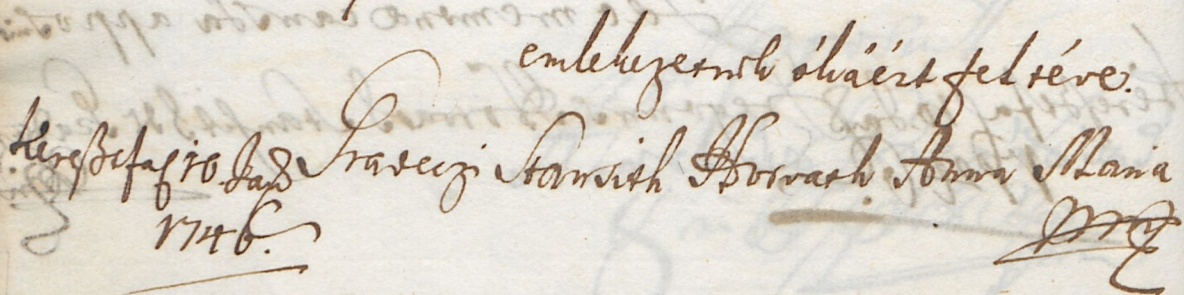 emlekezetnek okáért fel téve.
Kereßtfaſ 10 Jan Gradeczi Stansith Horvath Anna Maria
1746. mp